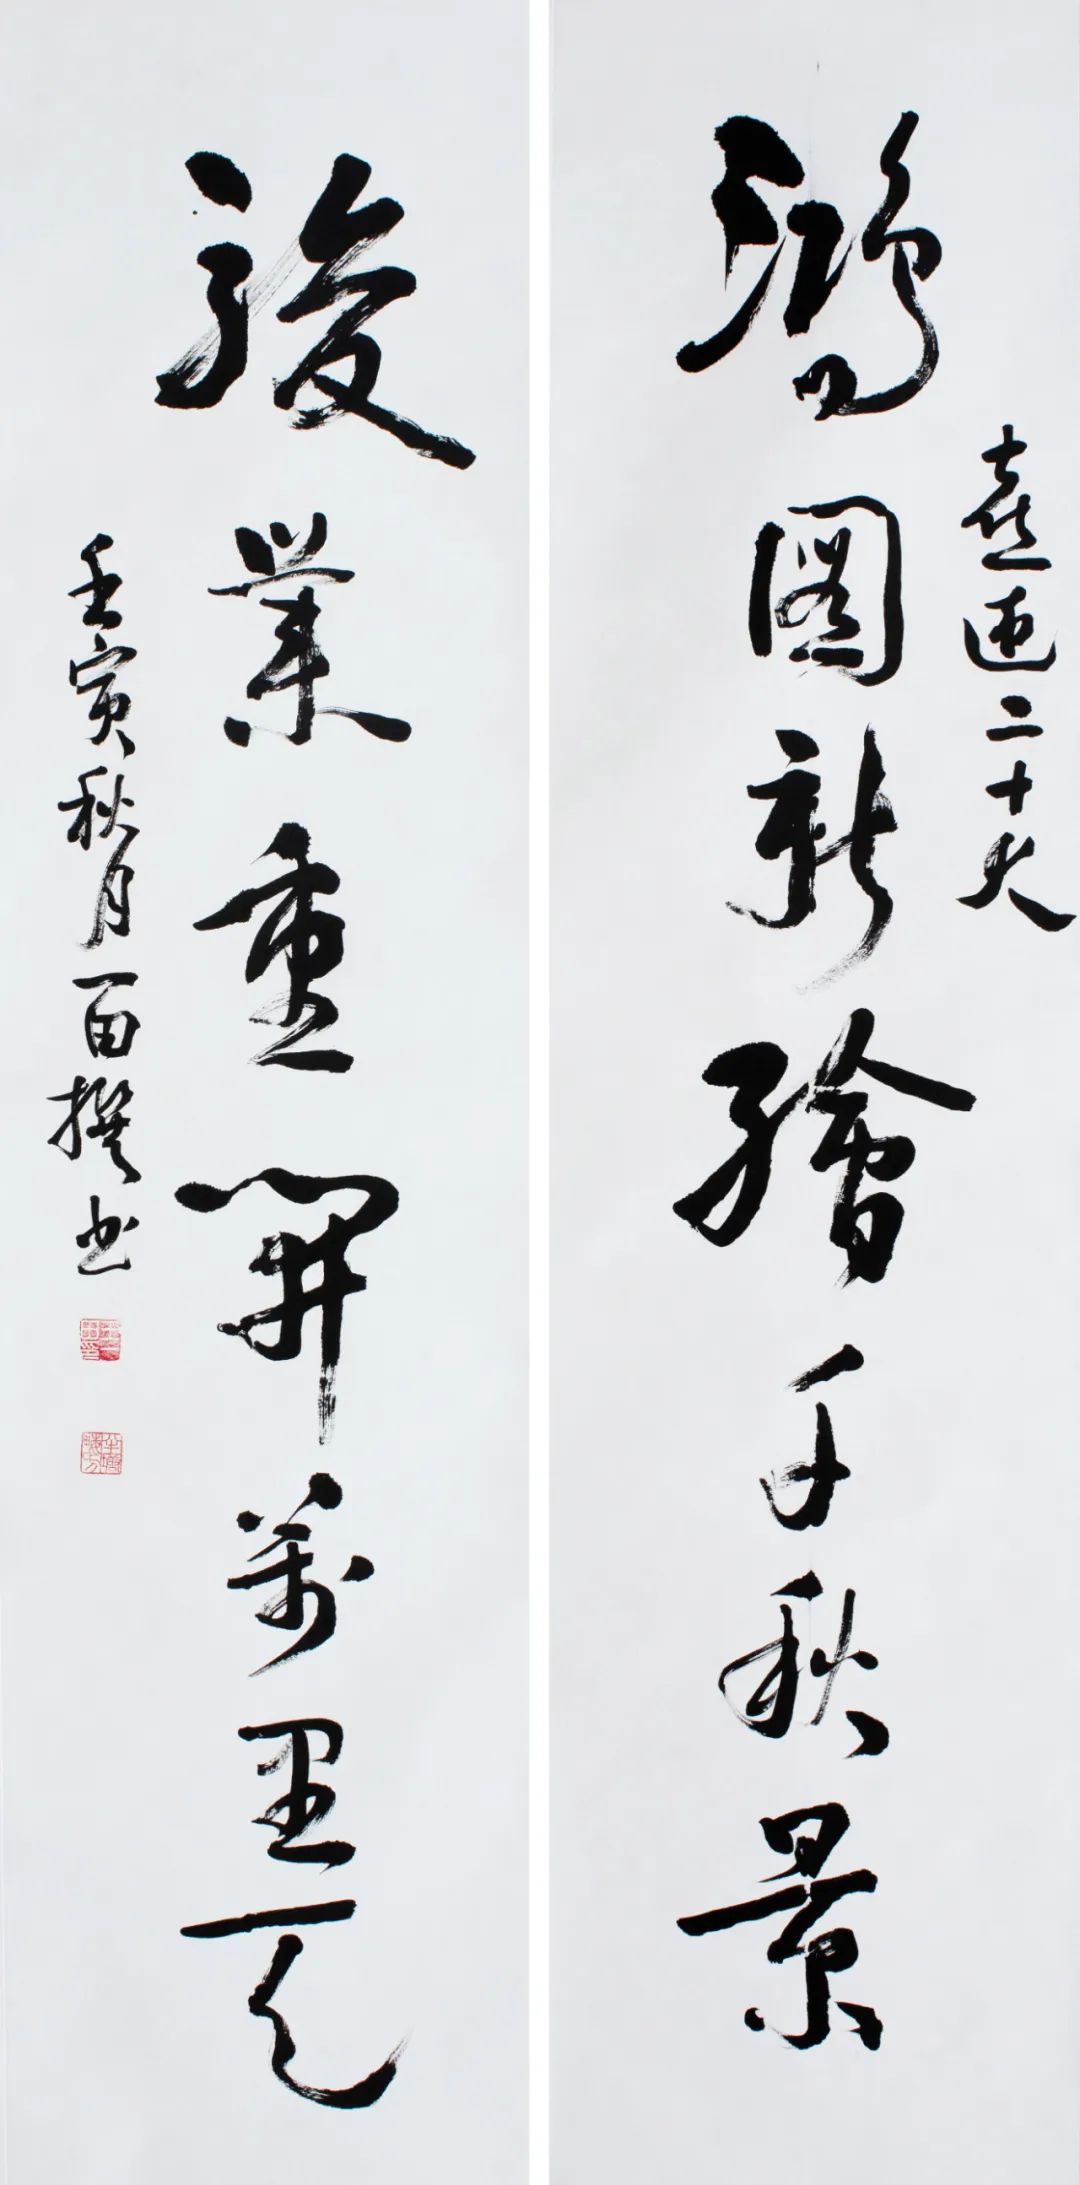 喜迎二十大
鴻圖新繪千秋景
駿業重開萬里天
壬寅秋月百撰书